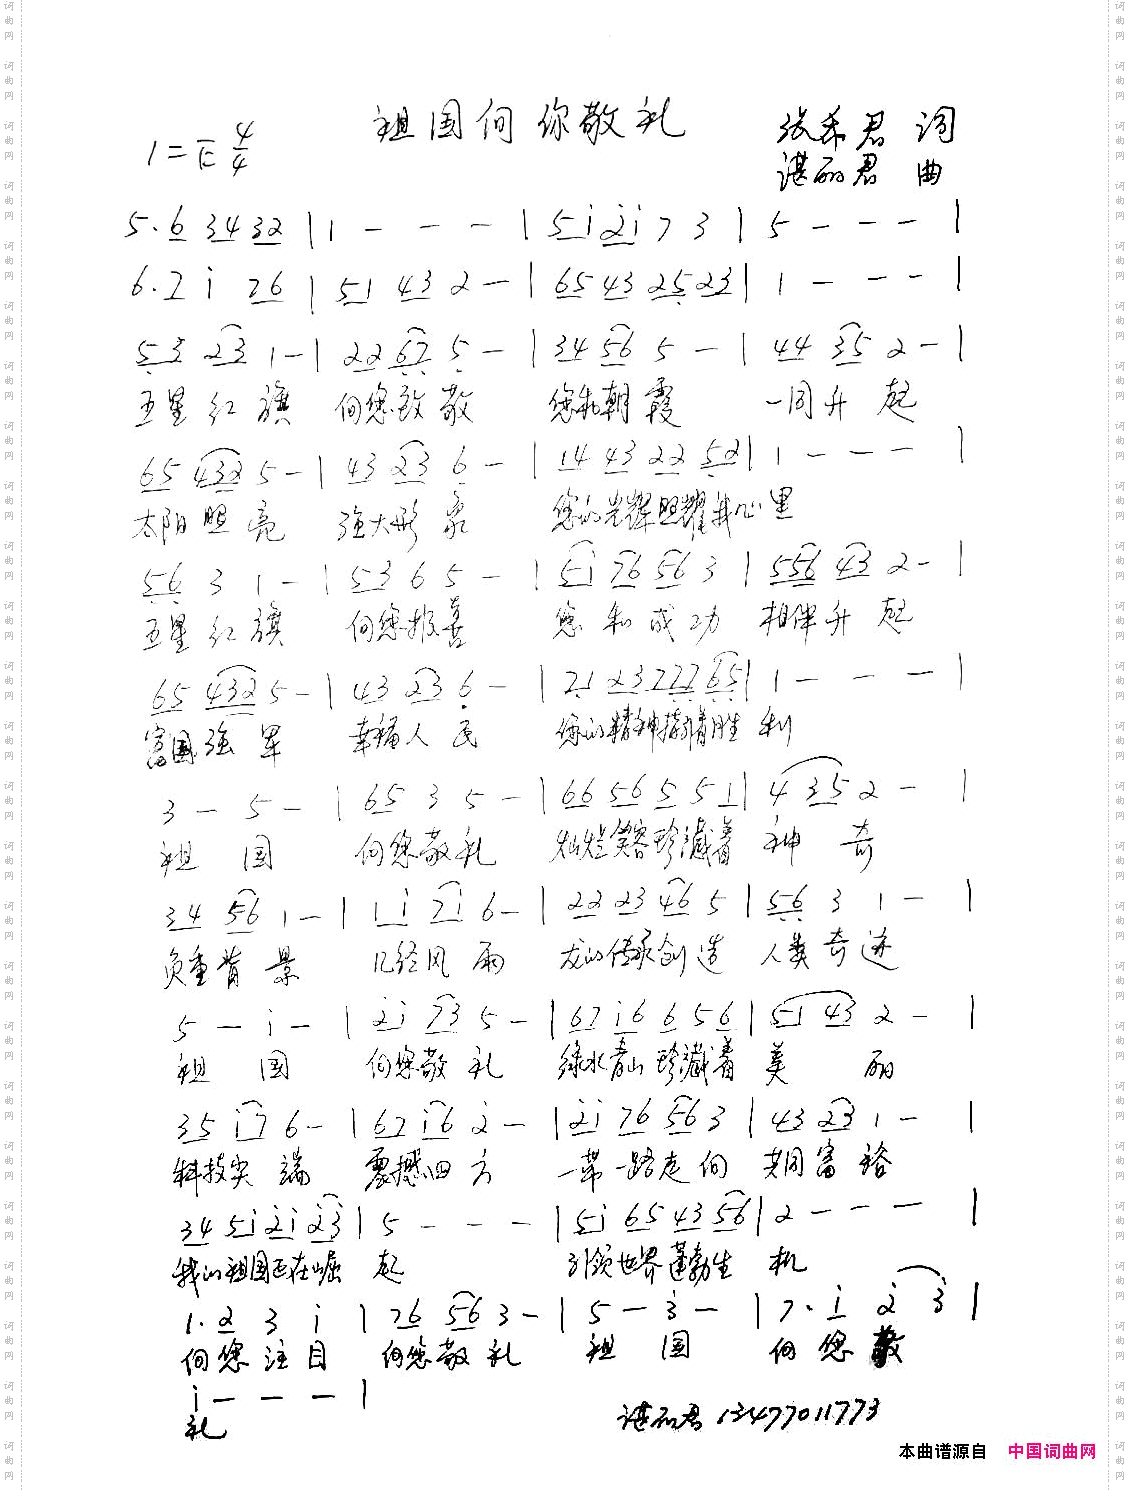 祖国向你敬礼
1=E 4/4
张希君 词
谌丽君 曲
5·6 34 32 | 1 - - - | 5i 2i 7 3 | 5 - - - |
6·7 i 76 | 51 43 2 - | 65 43 25 23 | 1 - - - |
53 23 1 - | 22 67 5 - | 34 56 5 - | 44 35 2 - |
五星红旗 向您致敬 您和朝霞 一同升起
65 432 5 - | 43 23 6 - | 14 43 22 52 | 1 - - - |
太阳照亮 强大形象 您的光辉照耀我心里
56 3 1 - | 53 6 5 - | 5i 76 56 3 | 556 43 2 - |
五星红旗 向您报喜 您和成功 相伴升起
65 432 5 - | 43 23 6 - | 21 23 777 65 | 1 - - - |
富国强军 幸福人民 您的精神指引着胜利
3 - 5 - | 65 3 5 - | 66 56 5 51 | 4 35 2 - |
祖国 向您敬礼 灿烂笑容珍藏着 神奇
34 56 1 - | 1i 7i 6 - | 22 23 46 5 | 56 3 1 - |
负重背景 几经风雨 龙的传承创造 人类奇迹
5 - i - | 2i 73 5 - | 67 i6 6 56 | 51 43 2 - |
祖国 向您敬礼 绿水青山珍藏着 美丽
35 i7 6 - | 67 i6 2 - | 2i 76 56 3 | 43 23 1 - |
科技尖端 震撼四方 一带一路走向 共同富裕
34 5i 2i 23 | 5 - - - | 5i 65 43 56 | 2 - - - |
我的祖国正在崛起 引领世界蓬勃生机
1·2 3 i | 76 56 3 - | 5 - 3 - | 7·i 2 3 |
向您注目 向您敬礼 祖国 向您敬
i - - - |
礼
谌丽君 13477011773
本曲谱源自 中国词曲网
词曲网